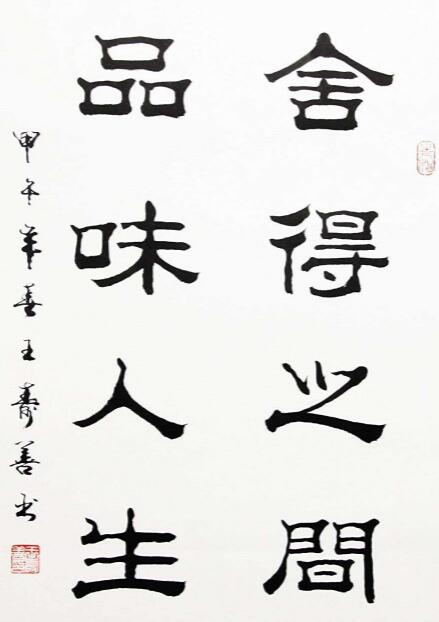 舍得之間
品味人生
甲午年春王寿善书